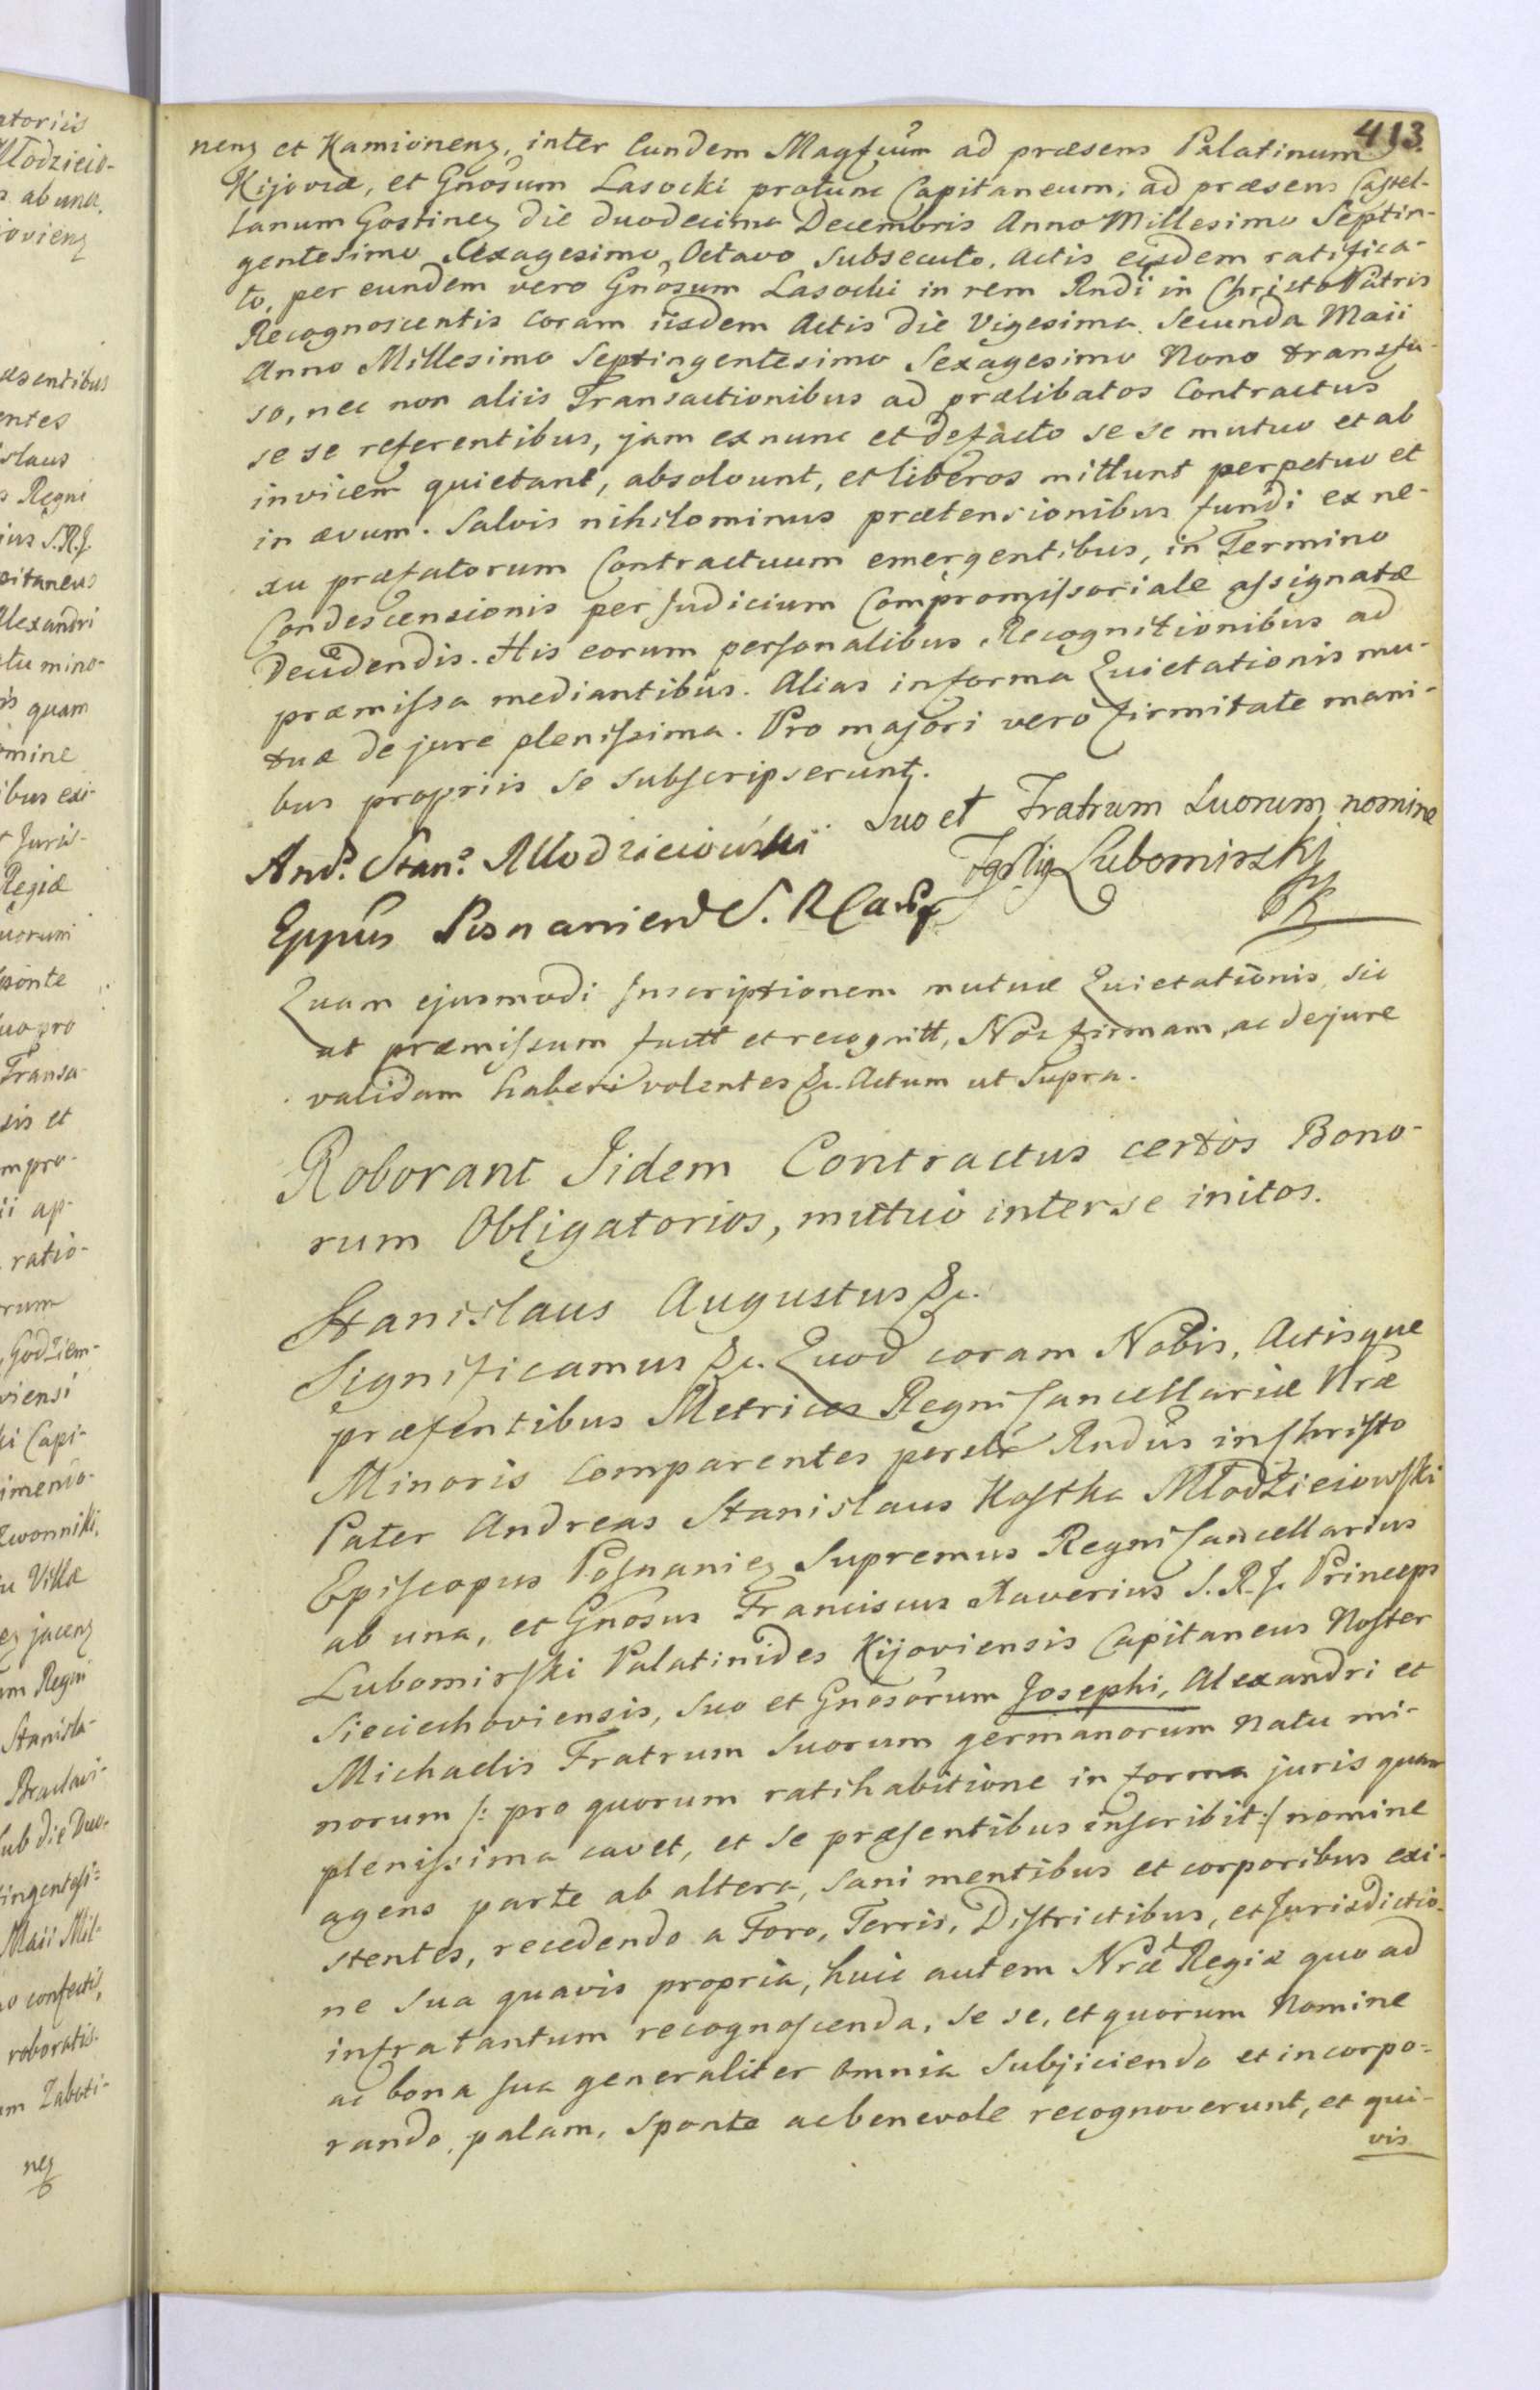 413.
nenꝫ et Kamionenꝫ, inter Eundem Magfcum ad præsens Palatinum
Kijoviæ, et Gnosum Lasocki protunc Capitaneum, ad præsens Castel-
lanum Gostinenꝫ die duodecima Decembris Anno Millesimo Septin-
gentesimo Sexagesimo Octavo subsecuto, Actis eisdem ratifica-
to, per eundem vero Gnosum Lasocki in rem Rndi in Christo Patris
Recognoscentis coram iisdem Actis die Vigesima Secunda Maii
Anno Millesimo Septingentesimo Sexagesimo Nono transfu-
so, nec non aliis Transactionibus ad prælibatos Contractus
se se referentibus, jam ex nunc et defacto se se mutuo et ab
invicem quietant, absolvunt, et liberos mittunt perpetuo et
in ævum. Salvis nihilominus prætensionibus fundi ex ne-
xu præfatorum Contractuum emergentibus, in Termino
Condescensionis per Judicium Compromissoriale assignatæ
decidendis. His eorum personalibus Recognitionibus ad
præmissa mediantibus. Alias in forma Quietationis mu-
tuæ de jure plenissima. Pro majori vero firmitate mani-
bus propriis se subscripserunt.
Suo et Fratrum Suorum nomine
And. Stan. Młodzieiowski
Lubomirskj
Eppus Posnanien S. R. Canc
Quam ejusmodi Inscriptionem mutuæ Quietationis, sic
ut præmissum fuitt et recognitt, Nos firmam, ac de jure
validam haberi volentes &c. Actum ut Supra.
Roborant Iidem Contractus certos Bono-
rum Obligatorios, mutuo inter se initos.
Stanislaus Augustus &c.
Significamus &c. Quod coram Nobis, Actisque
præsentibus Metrices Regni Cancellariæ Nræ
Minoris Comparentes personaliter Rndus in Christo
Pater Andreas Stanislaus Kostka Młodzieiowski
Episcopus Posnanienꝫ Supremus Regni Cancellarius
ab una, et Gnosus Franciscus Xaverius S. R. I. Princeps
Lubomirski Palatinides Kijoviensis Capitaneus Noster
Sieciechoviensis, Suo et Gnosorum Josephi, Alexandri et
Michaelis Fratrum Suorum germanorum natu mi-
norum /: pro quorum ratihabitione in forma juris quam
plenissima cavet, et se præsentibus inscribit :/ nomine
agens parte ab altera, sani mentibus et corporibus exi-
stentes, recedendo a Foro, Terris, Districtibus, et Jurisdictio-
ne sua quavis propria, huic autem Nræ Regiæ quo ad
infra tantum recognoscenda, se se, et quorum Nomine
ac bona sua generaliter omnia subjiciendo et incorpo-
rando, palam, sponte ac benevole recognoverunt, et qui-
vis